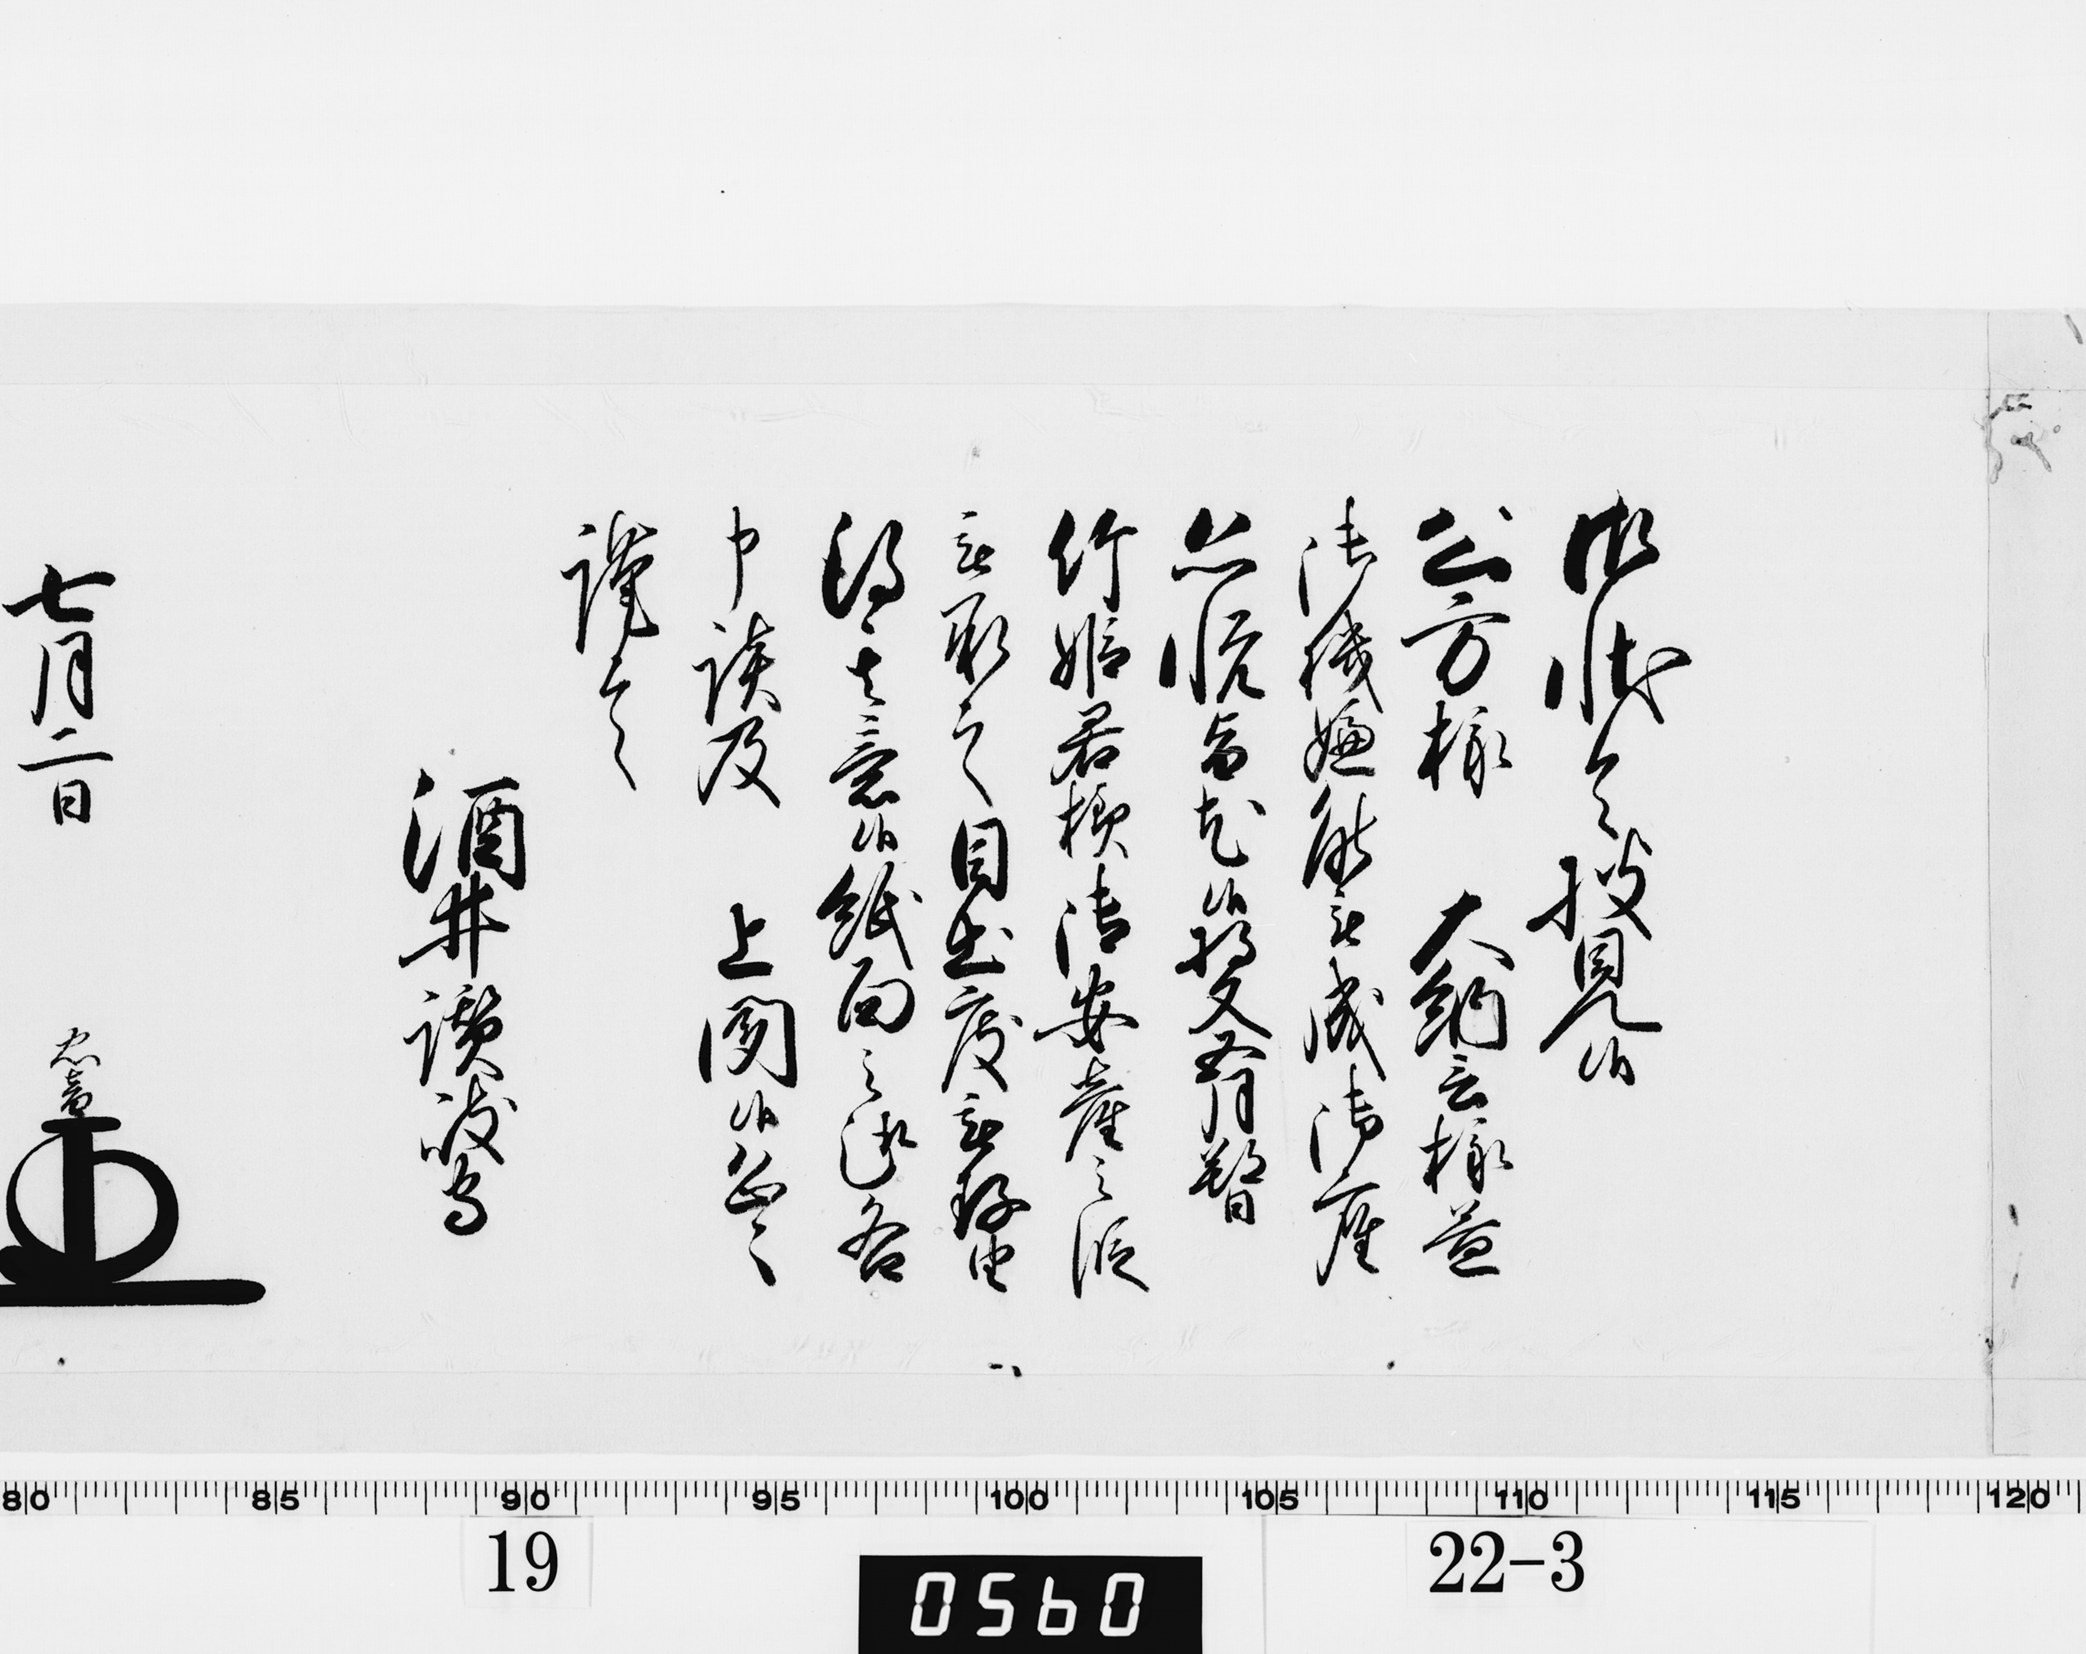 御状令披見候
公方様 大納言様益
御機嫌能被成御座
恐悦旨尤候将又五月朔日
竹姫君様御安産之段
被承之目出度被存由
得其意候紙面之趣各
申談及 上聞候恐々
謹言
酒井讃岐守
七月二日 忠音
80 85 90 95 100 105 110 115 120
19 22-3
0560